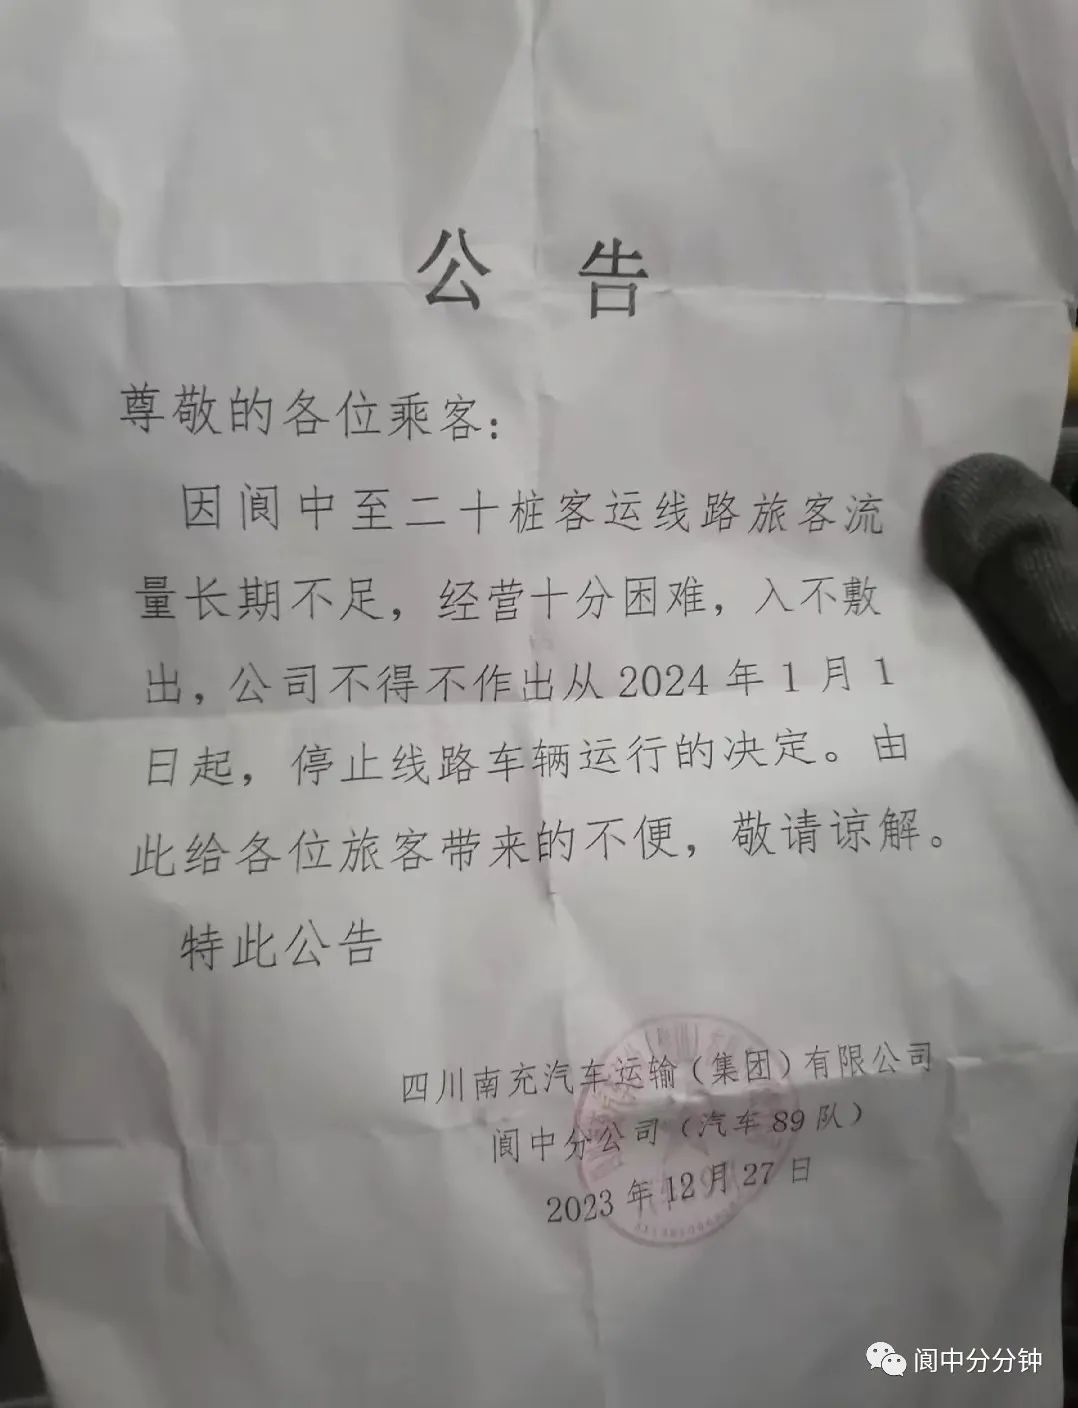 公 告
尊敬的各位乘客:
因阆中至二十桩客运线路旅客流
量长期不足，经营十分困难，入不敷
出，公司不得不作出从 2024 年 1 月 1
日起，停止线路车辆运行的决定。由
此给各位旅客带来的不便，敬请谅解。
特此公告
四川南充汽车运输（集团）有限公司
阆中分公司（汽车 89 队）
2023 年 12 月 27 日
阆中分分钟